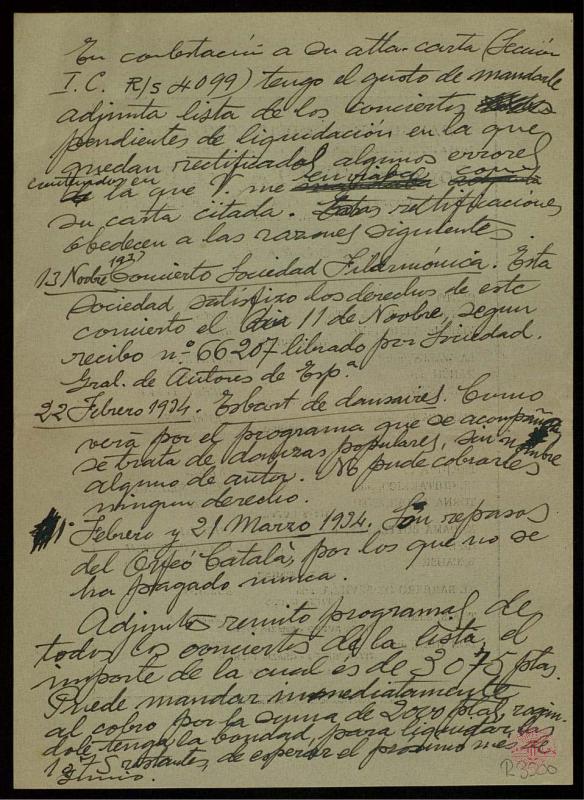 En contestación a su atta. carta (Sección
I. C. R/s 4099) tengo el gusto de mandarle
adjunta lista de los conciertos
pendientes de liquidación en la que
quedan rectificados algunos errores
continuados en
la que V. me
su carta citada. Estas rectificaciones
obedecen a las razones siguientes.
1937
13 Novbre Concierto Sociedad Filarmónica. Esta
Sociedad satisfizo los derechos de este
concierto el dia 11 de Novbre, segun
recibo n.º 66207 librado por Sociedad
Gral. de Autores de Esp.ª
22 Febrero 1934. Esbart de dansaires. Como
verá por el programa que se acompaña
se trata de danzas populares, sin nombre
alguno de autor. No pude cobrarles
ningun derecho.
1º
Febrero y 21 Marzo 1934. Son repasos
del Orfeó Català, por los que no se
ha pagado nunca.
Adjuntos remito programas de
todos los conciertos de la lista, el
importe de la cual es de 3075 ptas.
Puede mandar inmediatamente
al cobro por la suma de 2000 ptas,
dole tenga la bondad, para liquidar las
1075 restantes, de esperar el proximo mes de
Junio.
R 3500